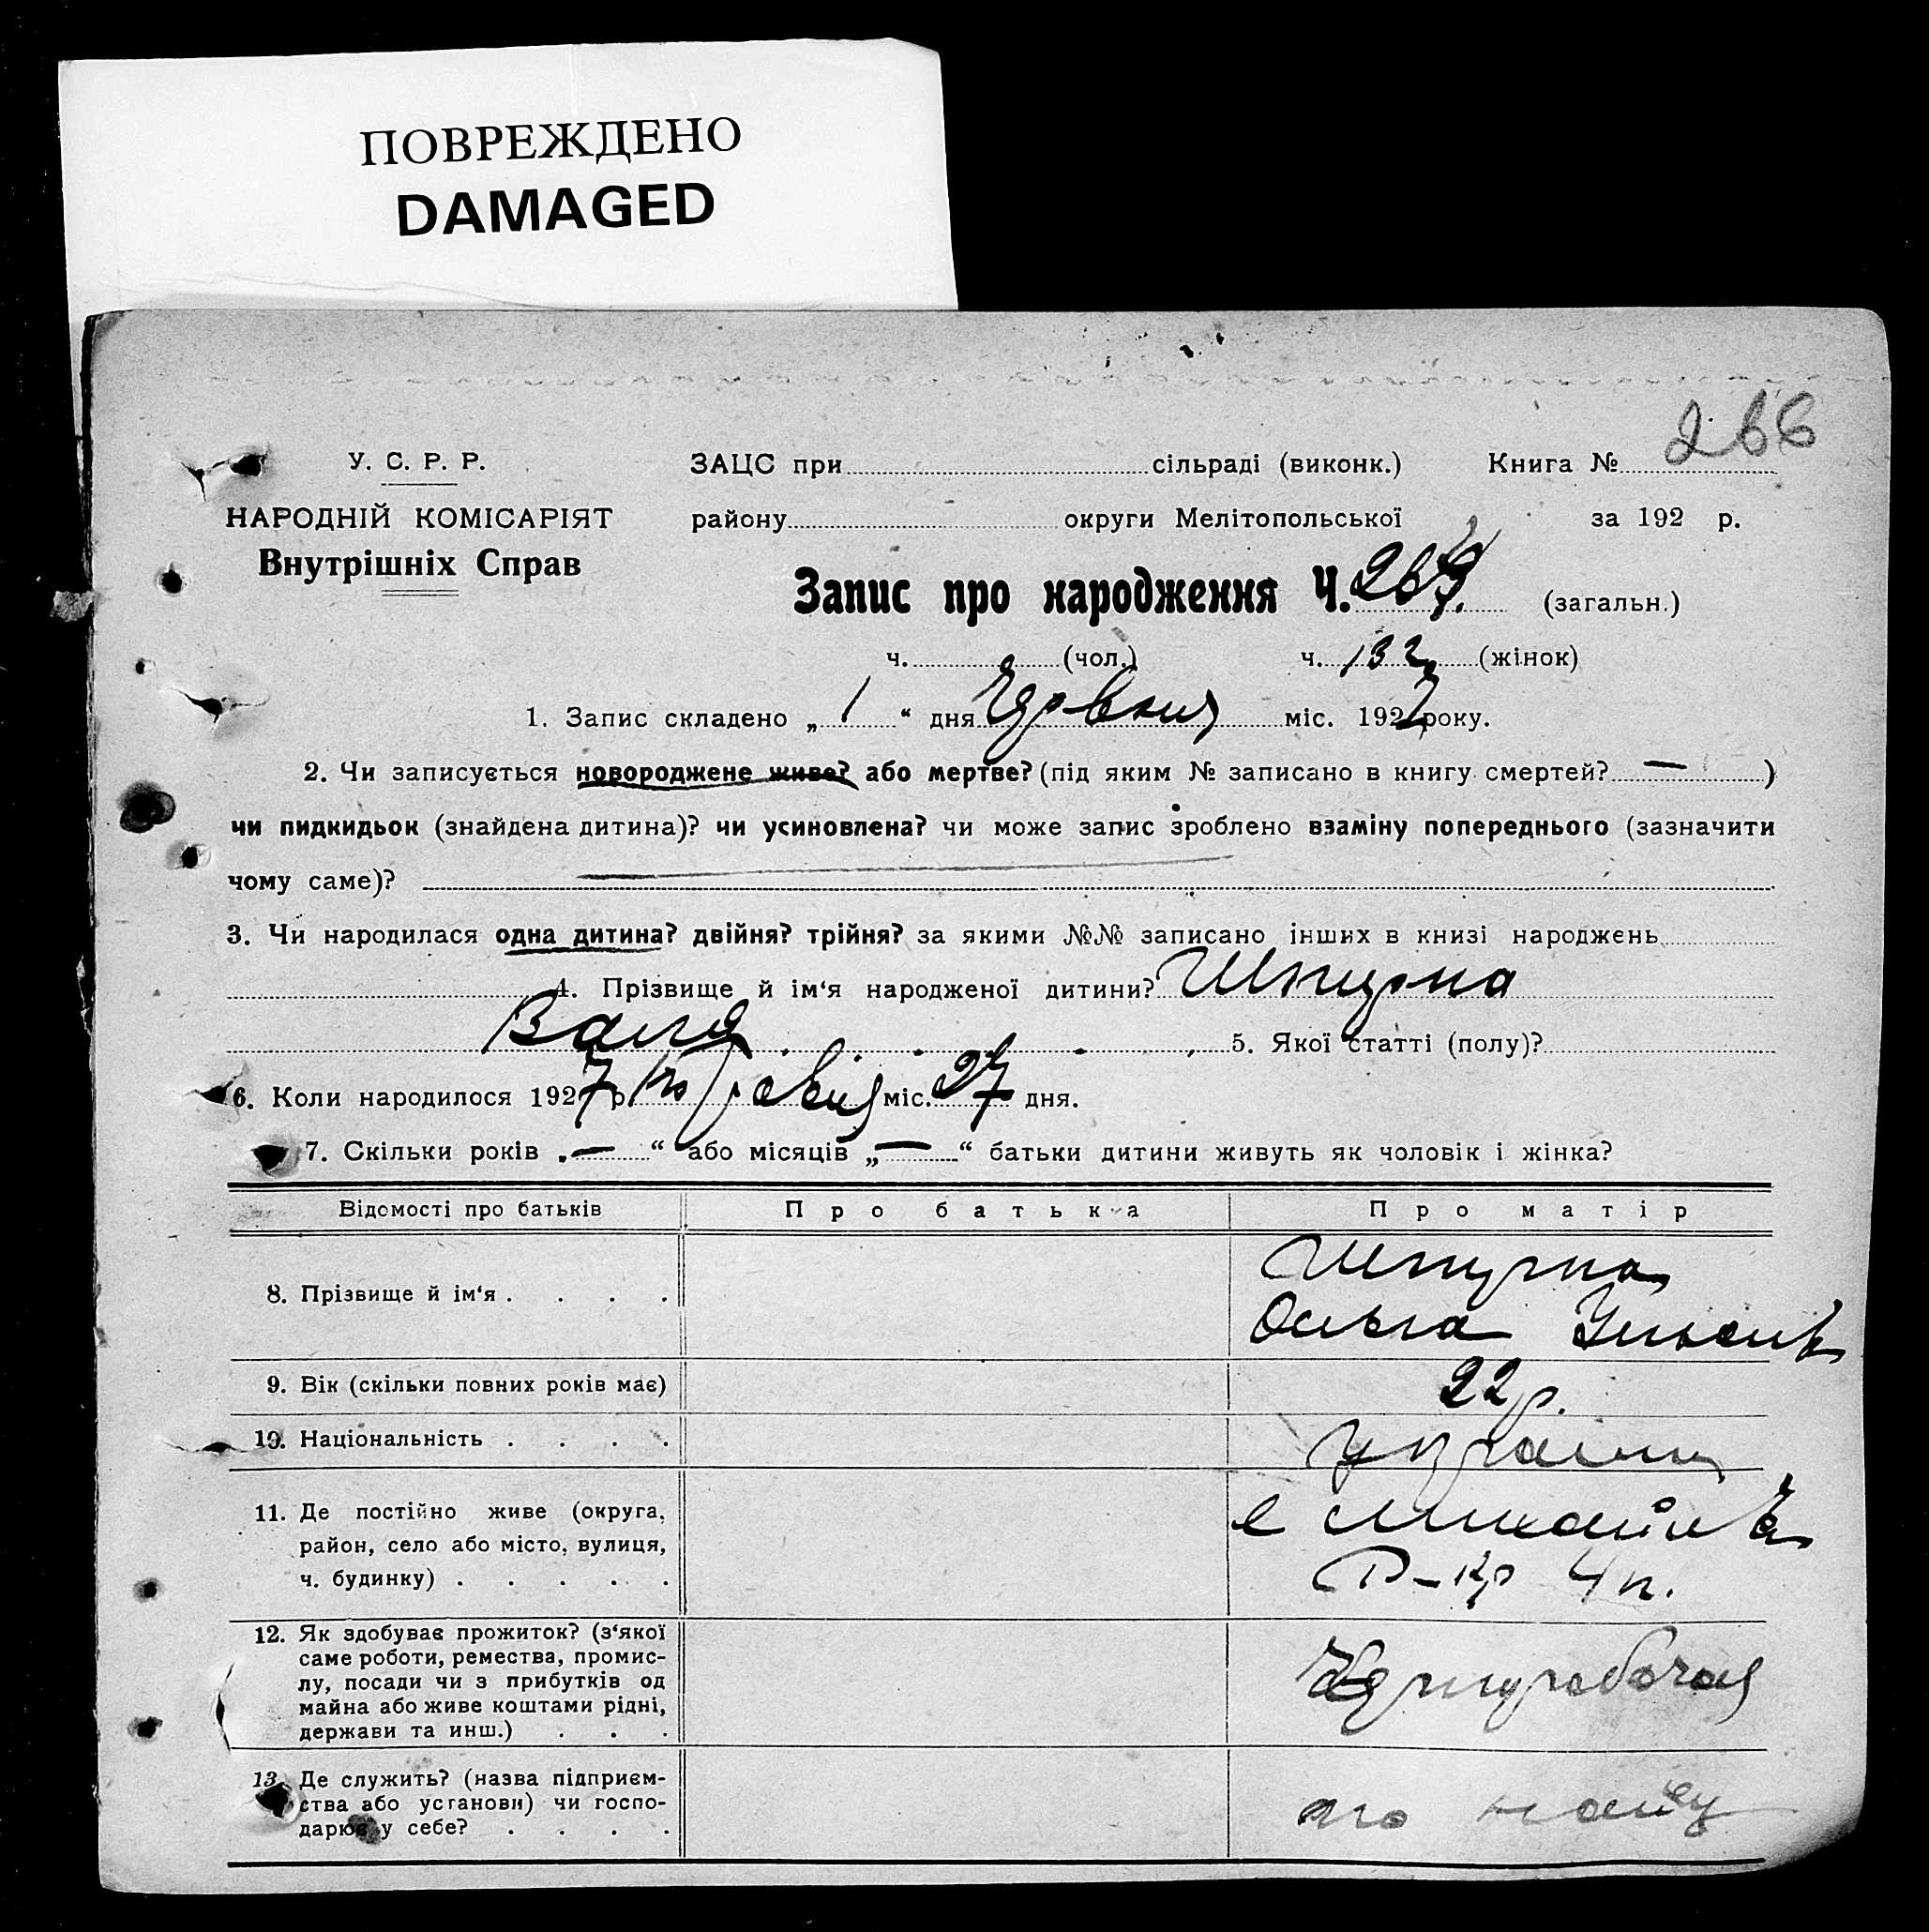 ПОВРЕЖДЕНО
DAMAGED
266
У. С. Р. Р.
НАРОДНІЙ КОМІСАРІЯТ
Внутрішніх Справ
ЗАЦС при сільраді (виконк.) Книга №
району округи Мелітопольської за 192 р.
Запис про народження Ч. (загальн.)
ч. (чол.) ч. 132 (жінок)
1. Запис складено „ 1 “ дня міс. 1927 року.
2. Чи записується новороджене живе? або мертве? (під яким № записано в книгу смертей? — )
чи пидкидьок (знайдена дитина)? чи усиновлена? чи може запис зроблено взаміну попереднього (зазначити
чому саме)?
3. Чи народилася одна дитина? двійня? трійня? за якими №№ записано інших в книзі народжень
4. Прізвище й ім‘я народженої дитини? Шпурна
Валя 5. Якої статті (полу)?
6. Коли народилося 1927 р. міс. 27 дня.
7. Скільки років „ — “ або місяців „ — “ батьки дитини живуть як чоловік і жінка?
Відомості про батьків Про батька Про матір
8. Прізвище й ім‘я . . . . Шпурна
Ольга
9. Вік (скільки повних років має) 22 р.
10. Національність . . . .
11. Де постійно живе (округа,
район, село або місто, вулиця,
ч. будинку) . . . . .
Р-Кр 4 п.
12. Як здобуває прожиток? (з‘якої
саме роботи, ремества, промис-
лу, посади чи з прибутків од
майна або живе коштами рідні,
держави та инш.) . . .
13. Де служить? (назва підприєм-
ства або установи) чи госпо-
дарює у себе? . . . .
по найму